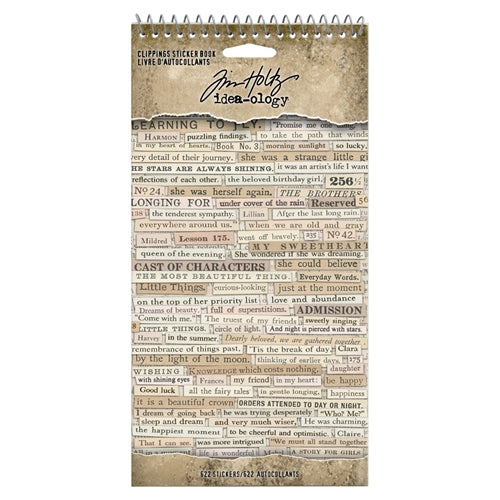 CLIPPINGS STICKER BOOK
LIVRE D'AUTOCOLLANTS
Tim Holtz
idea-ology
LEARNING TO FLY. "Promise me one
HARMON puzzling findings. to take the path that winds
in my heart of hearts. Book No. 3. morning sunlight so lucky,
very detail of their journey. she was a strange little gi
THE STARS ARE ALWAYS SHINING. it was an artist's life I want
reflections of each other. the beloved birthday girl, 256½
No 24. she was herself again. THE BROTHERS
LONGING FOR under cover of the rain. Reserved 56
138 the tenderest sympathy. Lillian After the last long rain.
everywhere around us." when we are old and gray
Mildred Lesson 175. went off bravely. 235 No 42.
MY SWEETHEART
queen of the evening. She wondered if she was dreaming.
CAST OF CHARACTERS she could believe
THE MOST BEAUTIFUL THING. Everyday Words.
Little Things. curious-looking just at the moment
on the top of her priority list love and abundance
Dreams of beauty. full of superstitions. ADMISSION
"Come with me." The truest of my friends sweetly singing
LITTLE THINGS. circle of light. And night is pierced with stars.
Harvey in the summer. Dearly beloved, we are gathered together
remembrance of things past. 'Tis the break of day. Clara
by the light of the moon. thinking of earlier days, 175
WISHING KNOWLEDGE which costs nothing. daughter
with shining eyes Frances my friend in my heart: be happy
Good luck all the fairy tales in gentle longing, happiness
it is a beautiful crown ORDERS ATTENDED TO DAY OR NIGHT.
I dream of going back he was trying desperately "Who? Me?"
sleep and dream and very much wiser, He was charming.
the happiest moment to be cheerful and optimistic. Claire,
That I can see. was more intrigued "We must all stand together
A STORY FOR GIRLS
622 STICKERS/622 AUTOCOLLANTS